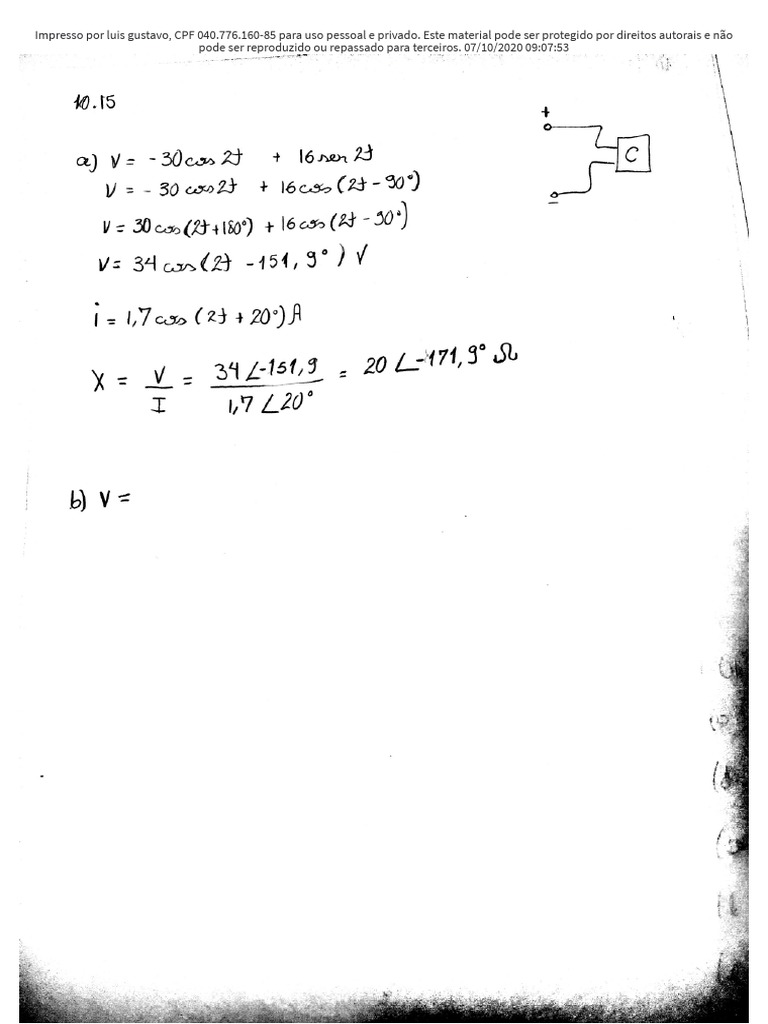 Impresso por luis gustavo, CPF 040.776.160-85 para uso pessoal e privado. Este material pode ser protegido por direitos autorais e não
pode ser reproduzido ou repassado para terceiros. 07/10/2020 09:07:53
10.15
+
C
−
a) V = -30 cos 2t + 16 sen 2t
V = -30 cos 2t + 16 cos (2t - 90°)
V = 30 cos (2t + 180°) + 16 cos (2t - 90°)
V = 34 cos (2t - 151,9°) V
i = 1,7 cos (2t + 20°) A
X = V/I = 34∠-151,9 / 1,7∠20° = 20∠-171,9° Ω
b) V =